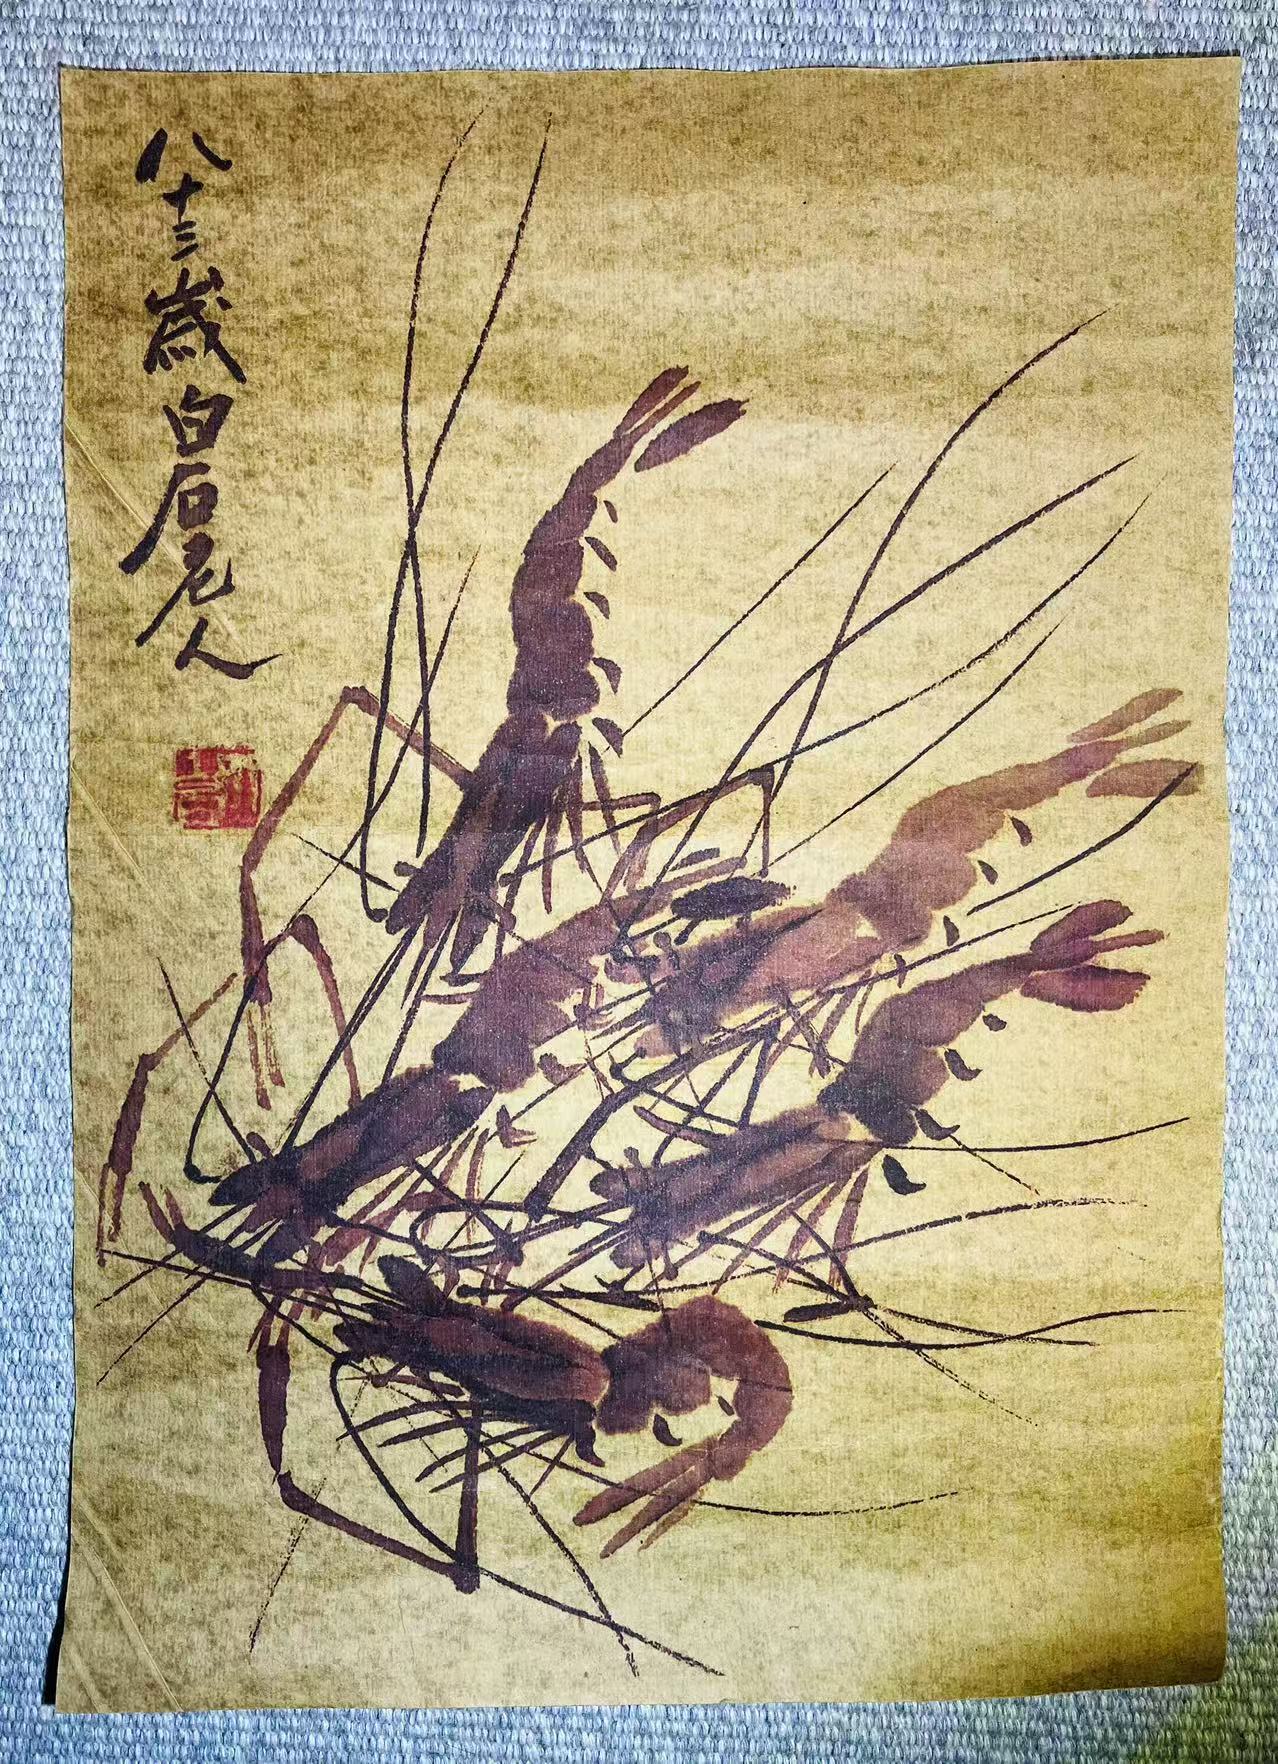 八十三歲白石老人